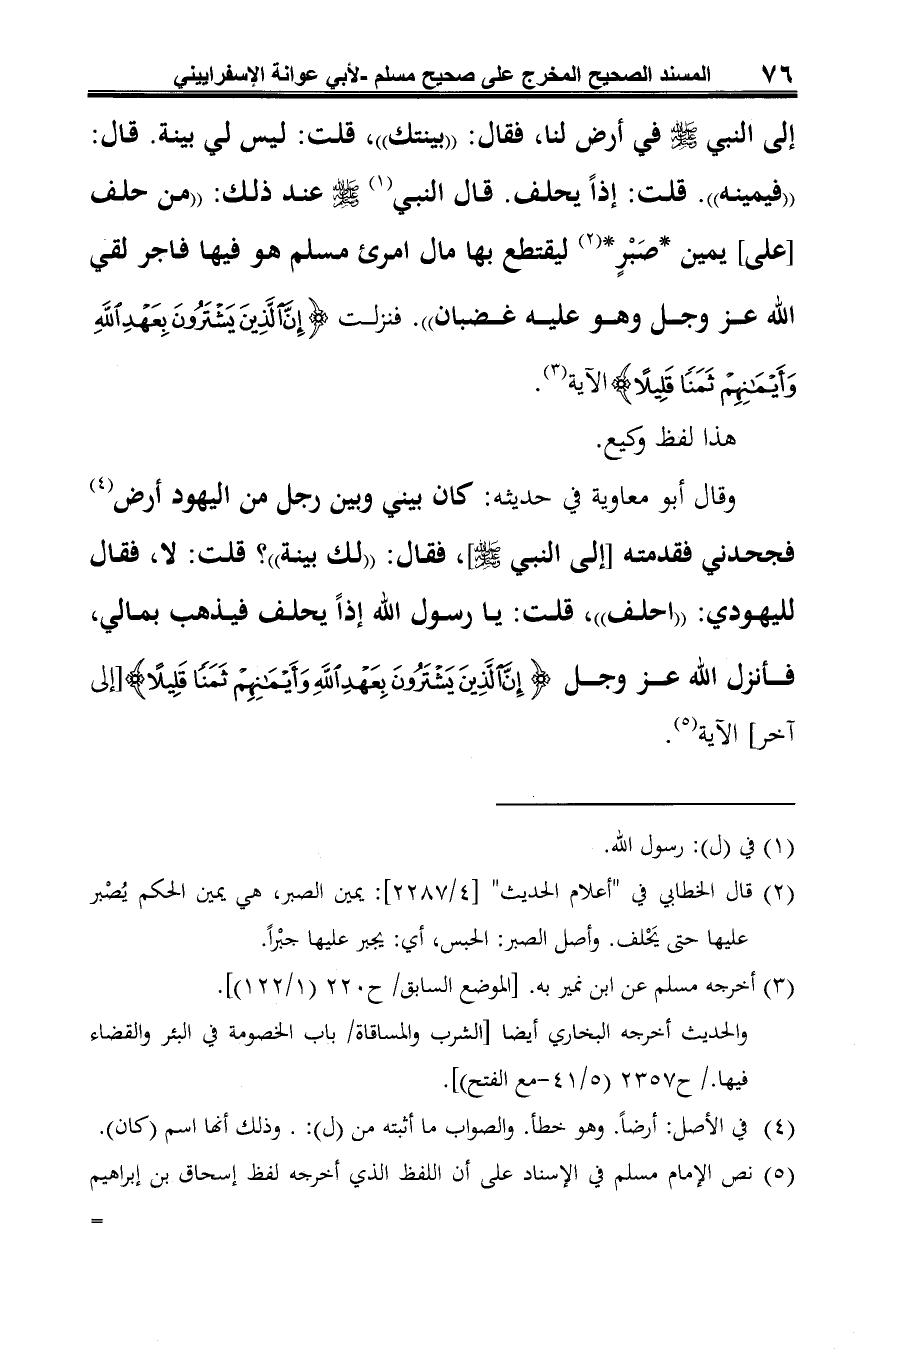 ٧٦ المسند الصحيح المخرج على صحيح مسلم -لأبي عوانة الإسفراييني
إلى النبي ﷺ في أرض لنا، فقال: ((بينتك))، قلت: ليس لي بينة. قال:
((فيمينه)). قلت: إذاً يحلف. قال النبي(١) ﷺ عند ذلك: ((من حلف
[على] يمين *صَبْرٍ*(٢) ليقتطع بها مال امرئ مسلم هو فيها فاجر لقي
الله عز وجل وهو عليه غضبان)). فنزلت ﴿إِنَّ ٱلَّذِينَ يَشْتَرُونَ بِعَهْدِ ٱللَّهِ
وَأَيْمَٰنِهِمْ ثَمَنًا قَلِيلًا﴾ الآية(٣).
هذا لفظ وكيع.
وقال أبو معاوية في حديثه: كان بيني وبين رجل من اليهود أرض(٤)
فجحدني فقدمته [إلى النبي ﷺ]، فقال: ((لك بينة))؟ قلت: لا، فقال
لليهودي: ((احلف))، قلت: يا رسول الله إذاً يحلف فيذهب بمالي،
فأنزل الله عز وجل ﴿إِنَّ ٱلَّذِينَ يَشْتَرُونَ بِعَهْدِ ٱللَّهِ وَأَيْمَٰنِهِمْ ثَمَنًا قَلِيلًا﴾[إلى
آخر] الآية(٥).
(١) في (ل): رسول الله.
(٢) قال الخطابي في "أعلام الحديث" [٢٢٨٧/٤]: يمين الصبر، هي يمين الحكم يُصْبر
عليها حتى يَحْلف. وأصل الصبر: الحبس، أي: يجبر عليها جبْراً.
(٣) أخرجه مسلم عن ابن نمير به. [الموضع السابق/ ح٢٢٠ (١٢٢/١)].
والحديث أخرجه البخاري أيضا [الشرب والمساقاة/ باب الخصومة في البئر والقضاء
فيها./ ح٢٣٥٧ (٤١/٥-مع الفتح)].
(٤) في الأصل: أرضاً. وهو خطأ. والصواب ما أثبته من (ل): . وذلك أنها اسم (كان).
(٥) نص الإمام مسلم في الإسناد على أن اللفظ الذي أخرجه لفظ إسحاق بن إبراهيم
=